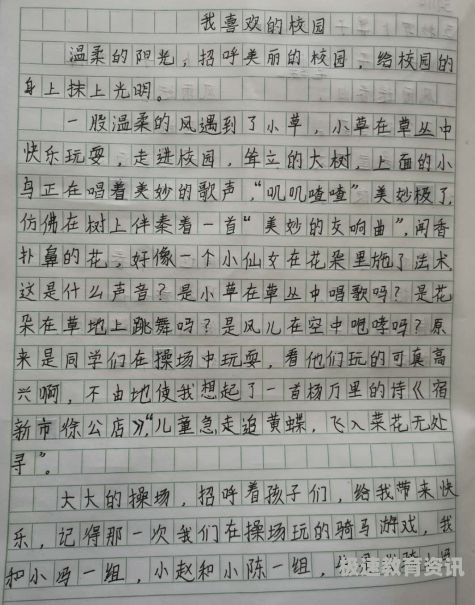 我喜欢的校园
温柔的阳光，招呼美丽的校园，给校园的
身上抹上光明。
一股温柔的风遇到了小草，小草在草丛中
快乐玩耍，走进校园，耸立的大树，上面的小
鸟正在唱着美妙的歌声，“叽叽喳喳”美妙极了，
仿佛在树上伴奏着一首“美妙的交响曲”，闻香
扑鼻的花，好像一个小仙女在花朵里施了法术，
这是什么声音？是小草在草丛中唱歌吗？是花
朵在草地上跳舞吗？是风儿在空中咆哮吗？原
来是同学们在操场中玩耍，看他们玩的可真高
兴啊，不由地使我想起了一首杨万里的诗《宿
新市徐公店》，“儿童急走追黄蝶，飞入菜花无处
寻”。
大大的操场，招呼着孩子们，给我带来快
乐，记得那一次我们在操场玩的骑马游戏，我
和小冯一组，小赵和小陈一组，
极速教育资讯